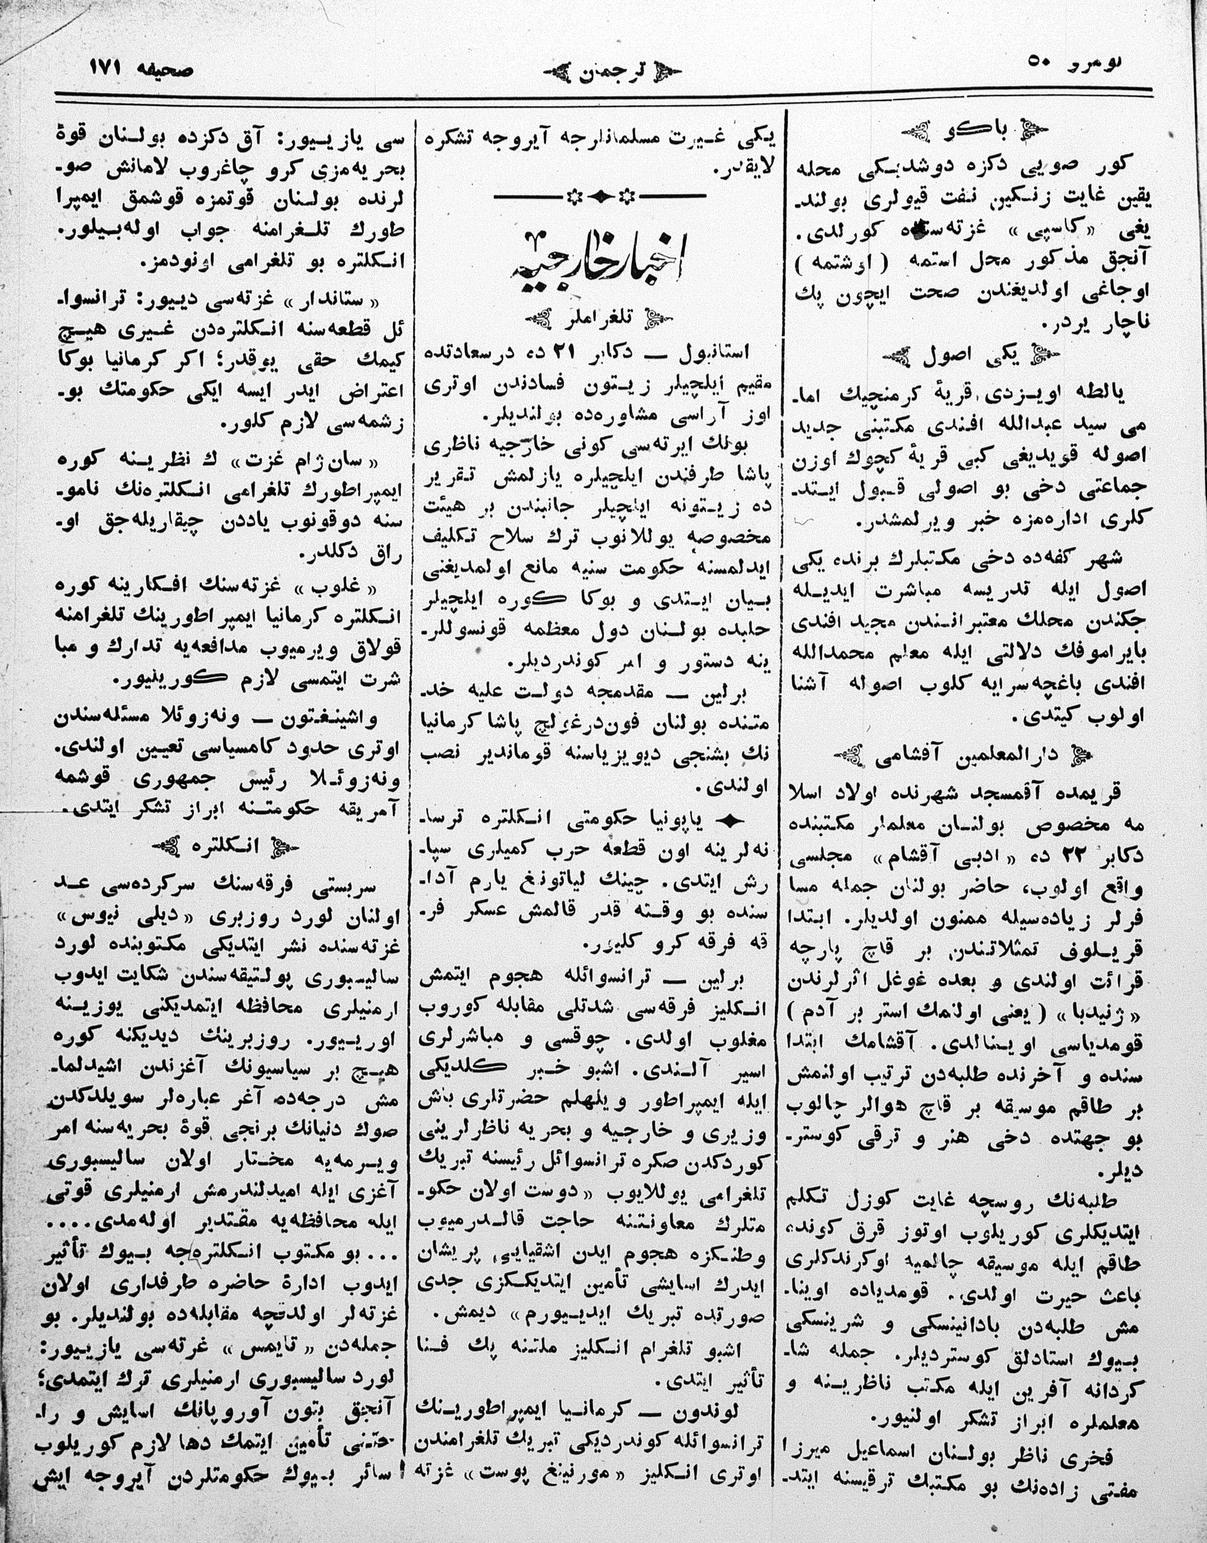 نومرو ۵۰
ترجمان
صحیفه ۱۷۱
باكو
كور صویی دكزه دوشدیكی محله
یقین غایت زنكین نفت قیولری بولند‌ـ
یغی «كاسپی» غزته‌سنده كورلدی.
آنجق مذكور محل استمه (اوشتمه)
اوجاغی اولدیغندن صحت ایچون پك
ناچار یردر.
یكی اصول
یالطه اویزدی قریۀ كرمنچیك اماـ
می سید عبدالله افندی مكتبنی جدید
اصوله قویدیغی كبی قریۀ كچوك اوزن
جماعتی دخی بو اصولی قبول ایتدـ
كلری اداره‌مزه خبر ویرلمشدر.
شهر كفه‌ده دخی مكتبلرك برنده یكی
اصول ایله تدریسه مباشرت ایدیله
جكندن محلك معتبرانندن مجید افندی
بایراموفك دلالتی ایله معلم محمدالله
افندی باغچه‌سرایه كلوب اصوله آشنا
اولوب كیتدی.
دارالمعلمین آقشامی
قریمده آقمسجد شهرنده اولاد اسلا
مه مخصوص بولنان معلملر مكتبنده
دكابر ۲۲ ده «ادبی آقشام» مجلسی
واقع اولوب، حاضر بولنان جمله مسا
فرلر زیاده‌سیله ممنون اولدیلر. ابتدا
قریلوف تمثلاتندن بر قاچ پارچه
قرائت اولندی و بعده غوغل اثرلرندن
«ژنیدبا» (یعنی اولنمك استر بر آدم)
قومدیاسی اوینالدی. آقشامك ابتدا
سنده و آخرنده طلبه‌دن ترتیب اولنمش
بر طاقم موسیقه بر قاچ هوالر چالوب
بو جهتده دخی هنر و ترقی كوسترـ
دیلر.
طلبه‌نك روسچه غایت كوزل تكلم
ایتدیكلری كوریلوب اوتوز قرق كونده
طاقم ایله موسیقه چالمیه اوكرندكلری
باعث حیرت اولدی. قومدیاده اویناـ
مش طلبه‌دن بادانینسكی و شرینسكی
بیوك استادلق كوستردیلر. جمله شاـ
كردانه آفرین ایله مكتب ناظرینه و
معلملره ابراز تشكر اولنیور.
فخری ناظر بولنان اسماعیل میرزا
مفتی زاده‌نك بو مكتبك ترقیسنه ایتدـ
یكی غیرت مسلمانلرجه آیروجه تشكره
لایقدر.
اخبار خارجیه
تلغراملر
استانبول — دكابر ۲۱ ده درسعادتده
مقیم ایلچیلر زیتون فسادندن اوتری
اوز آراسی مشاوره‌ده بولندیلر.
بونك ایرته‌سی كونی خارجیه ناظری
پاشا طرفندن ایلچیلره یازلمش تقریر
ده زیتونه ایلچیلر جانبندن بر هیئت
مخصوصه یوللانوب ترك سلاح تكلیف
ایدلمسنه حكومت سنیه مانع اولمدیغنی
بیان ایتدی و بوكا كوره ایلچیلر
حلبده بولنان دول معظمه قونسوللرـ
ینه دستور و امر كوندردیلر.
برلین — مقدمجه دولت علیه خدـ
متنده بولنان فون‌درغولچ پاشا كرمانیا
نك بشنجی دیویزیاسنه قوماندیر نصب
اولندی.
یاپونیا حكومتی انكلتره ترساـ
نه‌لرینه اون قطعه حرب كمیلری سپاـ
رش ایتدی. چینك لیاتونغ یارم آداـ
سنده بو وقته قدر قالمش عسكر فرـ
قه فرقه كرو كلیور.
برلین — ترانسوائله هجوم ایتمش
انكلیز فرقه‌سی شدتلی مقابله كوروب
مغلوب اولدی. چوقسی و مباشرلری
اسیر آلندی. اشبو خبر كلدیكی
ایله ایمپراطور ویلهلم حضرتلری باش
وزیری و خارجیه و بحریه ناظرلرینی
كوردكدن صكره ترانسوائل رئیسنه تبریك
تلغرامی یوللایوب «دوست اولان حكوـ
متلرك معاونتنه حاجت قالدرمیوب
وطنكزه هجوم ایدن اشقیایی پریشان
ایدرك اسایشی تأمین ایتدیككزی جدی
صورتده تبریك ایدییورم» دیمش.
اشبو تلغرام انكلیز ملتنه پك فنا
تأثیر ایتدی.
لوندون — كرمانیا ایمپراطورینك
ترانسوائله كوندردیكی تبریك تلغرامندن
اوتری انكلیز «مورنینغ پوست» غزته
سی یازییور: آق دكزده بولنان قوۀ
بحریه‌مزی كرو چاغروب لامانش صوـ
لرنده بولنان قوتمزه قوشمق ایمپرا
طورك تلغرامنه جواب اوله‌بیلور.
انكلتره بو تلغرامی اونودمز.
«ستاندار» غزته‌سی دییور: ترانسواـ
ئل قطعه‌سنه انكلتره‌دن غیری هیچ
كیمك حقی یوقدر؛ اكر كرمانیا بوكا
اعتراض ایدر ایسه ایكی حكومتك بوـ
زشمه‌سی لازم كلور.
«سان‌ژام غزت» ك نظرینه كوره
ایمپراطورك تلغرامی انكلتره‌نك ناموـ
سنه دوقونوب یاددن چیقاریله‌جق اوـ
راق دكلدر.
«غلوب» غزته‌سنك افكارینه كوره
انكلتره كرمانیا ایمپراطورینك تلغرامنه
قولاق ویرمیوب مدافعه‌یه تدارك و مبا
شرت ایتمسی لازم كورینیور.
واشینغتون — ونه‌زوئلا مسئله‌سندن
اوتری حدود كامسیاسی تعیین اولندی.
ونه‌زوئلا رئیس جمهوری قوشمه
آمریقه حكومتنه ابراز تشكر ایتدی.
انكلتره
سربستی فرقه‌سنك سركرده‌سی عد
اولنان لورد روزبری «دیلی نیوس»
غزته‌سنده نشر ایتدیكی مكتوبنده لورد
سالیسبوری پولتیقه‌سندن شكایت ایدوب
ارمنیلری محافظه ایتمدیكنی یوزینه
اورییور. روزبرینك دیدیكنه كوره
هیچ بر سیاسیونك آغزندن اشیدلماـ
مش درجه‌ده آغر عباره‌لر سویلدكدن
صوك دنیانك برنجی قوۀ بحریه‌سنه امر
ویرمه‌یه مختار اولان سالیسبوری
آغزی ایله امیدلندرمش ارمنیلری قوتی
ایله محافظه‌یه مقتدیر اوله‌مدی....
... بو مكتوب انكلتره‌جه بیوك تأثیر
ایدوب ادارۀ حاضره طرفداری اولان
غزته‌لر اولدقچه مقابله‌ده بولندیلر. بو
جمله‌دن «تایمس» غزته‌سی یازییور:
لورد سالیسبوری ارمنیلری ترك ایتمدی؛
آنجق بتون آوروپانك اسایش و راـ
حتنی تأمین ایتمك دها لازم كوریلوب
سائر بیوك حكومتلردن آیروجه ایش